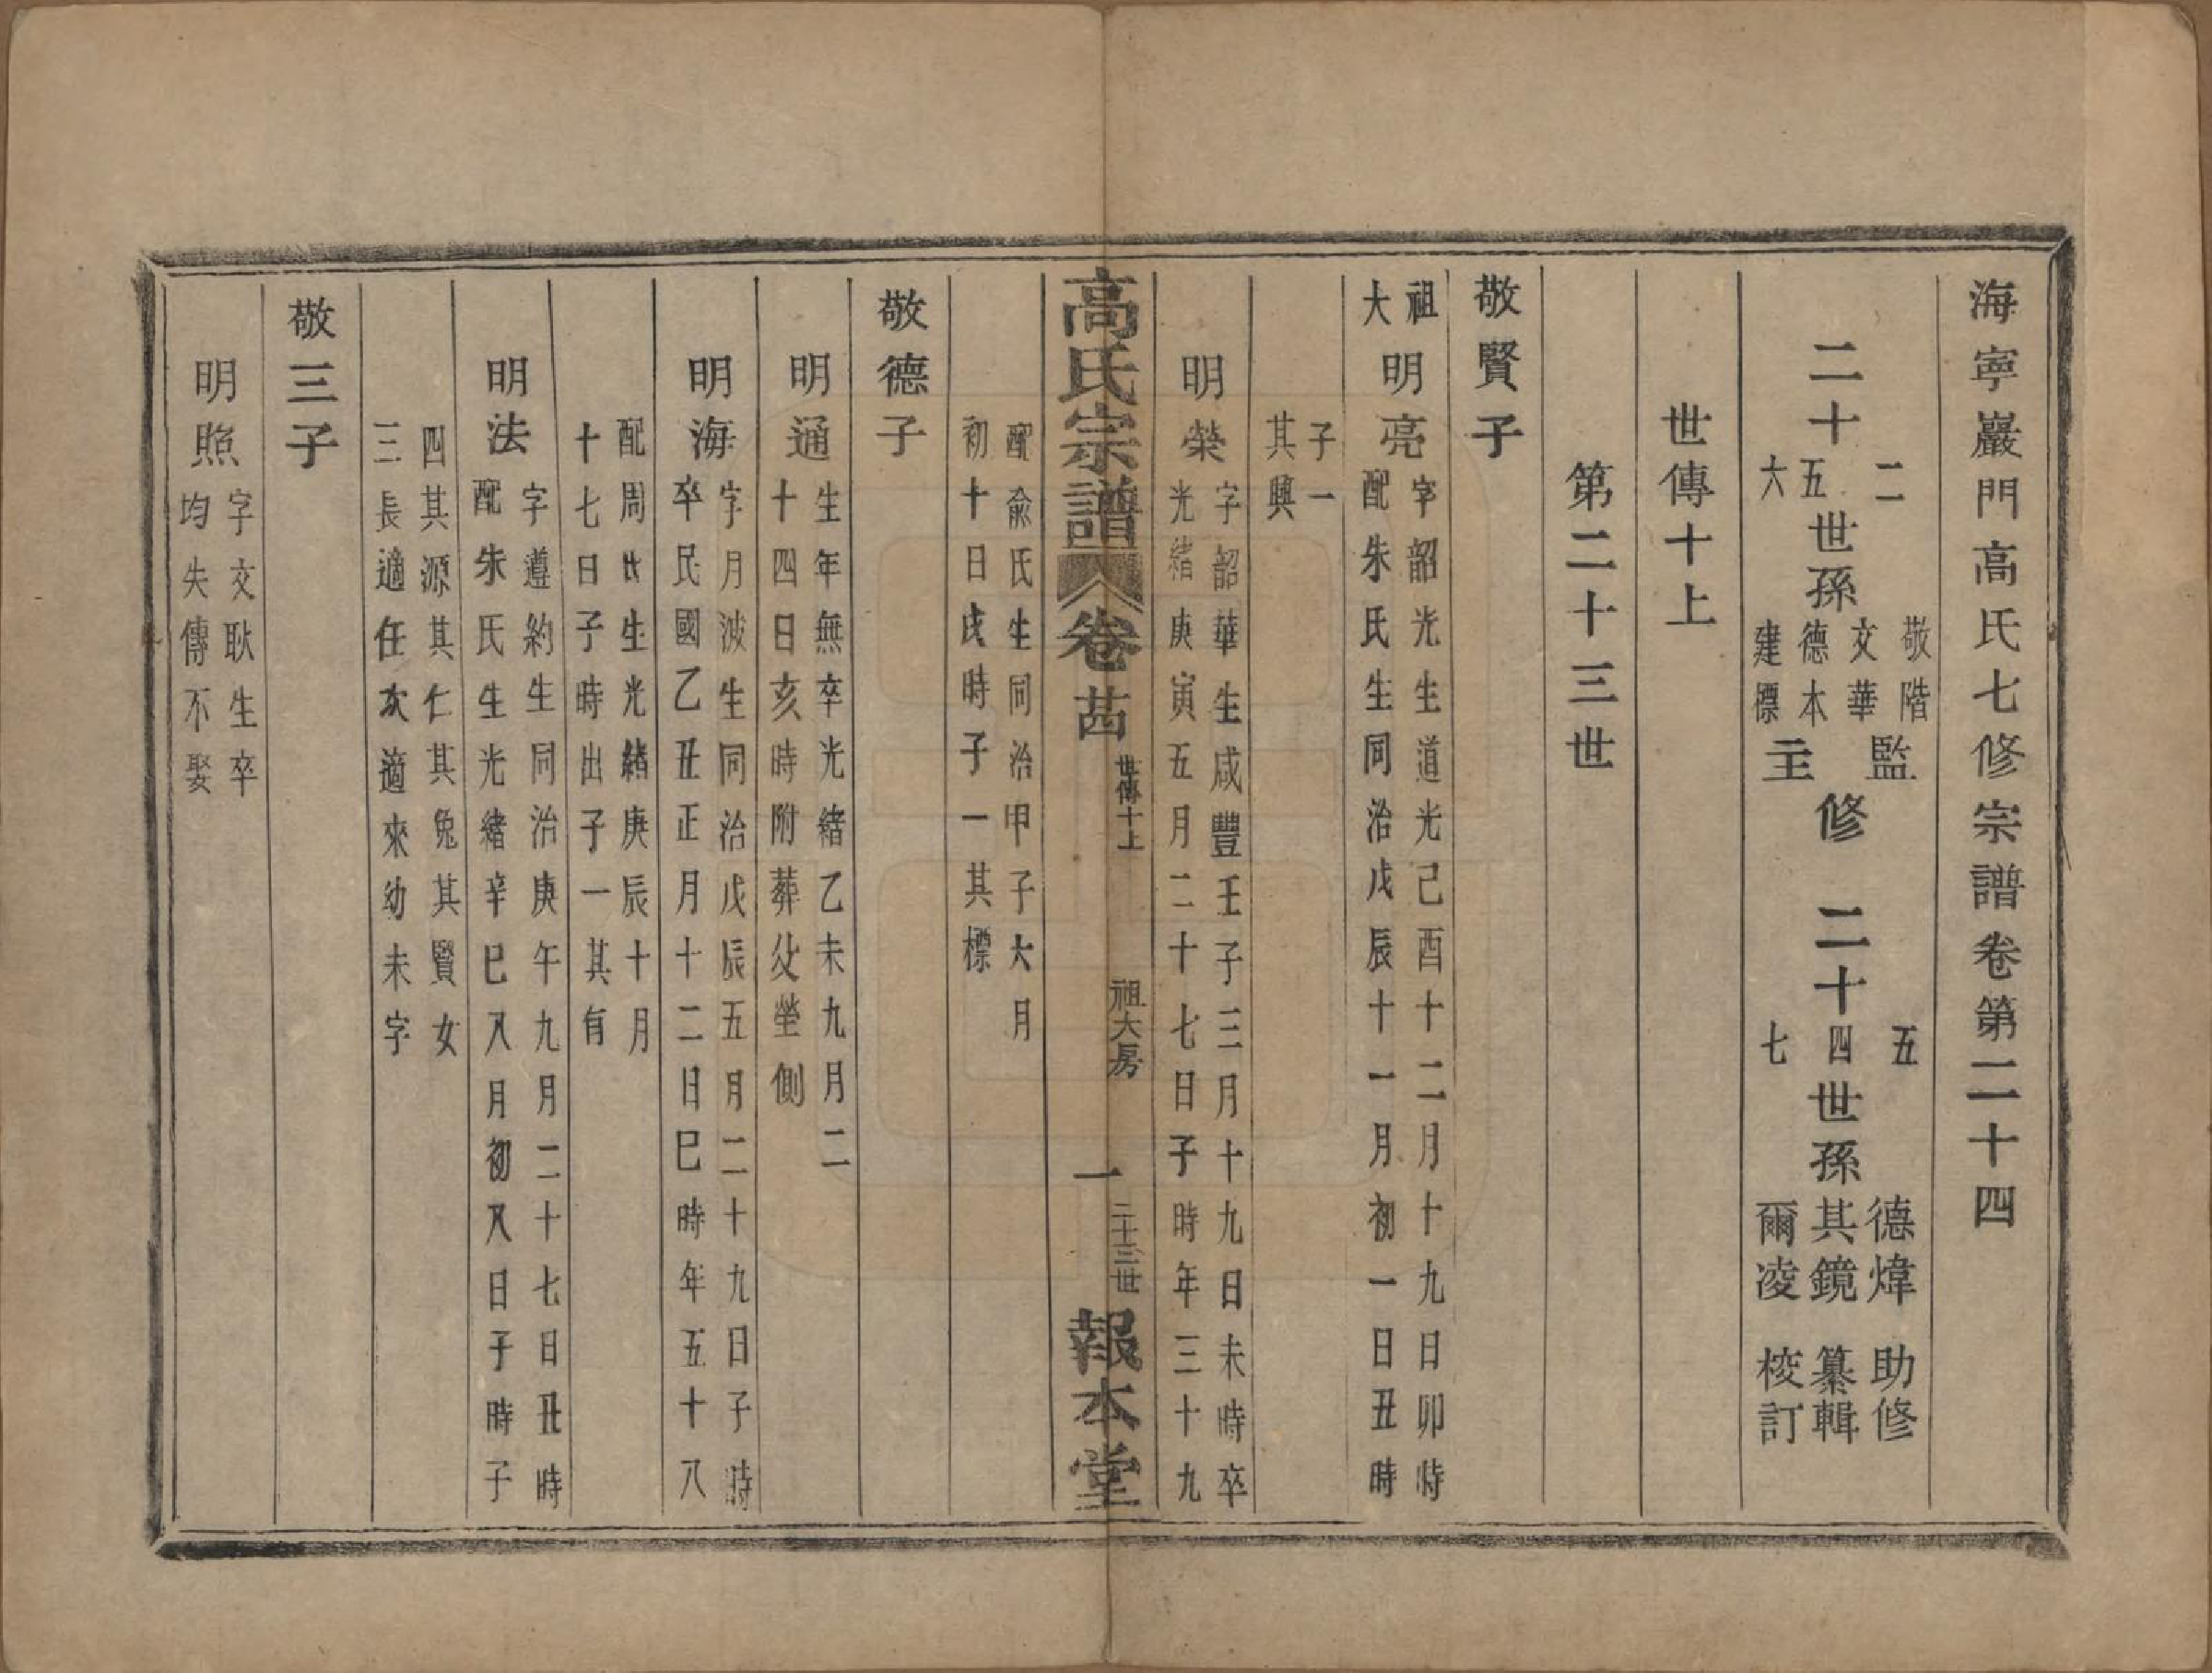 海寧巖門高氏七修宗譜卷第二十四
二十二五六世孫敬階文華德本建標監主修
二十五四七世孫德煒其鏡爾凌助修纂輯校訂
世傳十上
第二十三世
敬賢子
祖大
明亮
字韶光生道光己酉十二月十九日卯時
配朱氏生同治戊辰十一月初一日丑時
子一
其興
明榮
字韶華生咸豐壬子三月十九日未時卒
光緒庚寅五月二十七日子時年三十九
高氏宗譜
卷廿四
世傳十上
祖大房
一
二十三世
報本堂
配俞氏生同治甲子大月
初十日戌時子一其標
敬德子
明通
生年無卒光緒乙未九月二
十四日亥時附葬父塋側
明海
字月波生同治戊辰五月二十九日子時
卒民國乙丑正月十二日巳時年五十八
配周氏生光緒庚辰十月
十七日子時出子一其有
明法
字遵約生同治庚午九月二十七日丑時
配朱氏生光緒辛巳八月初八日子時子
四其源其仁其兔其賢女
三長適任次適來幼未字
敬三子
明照
字文耿生卒
均失傳不娶